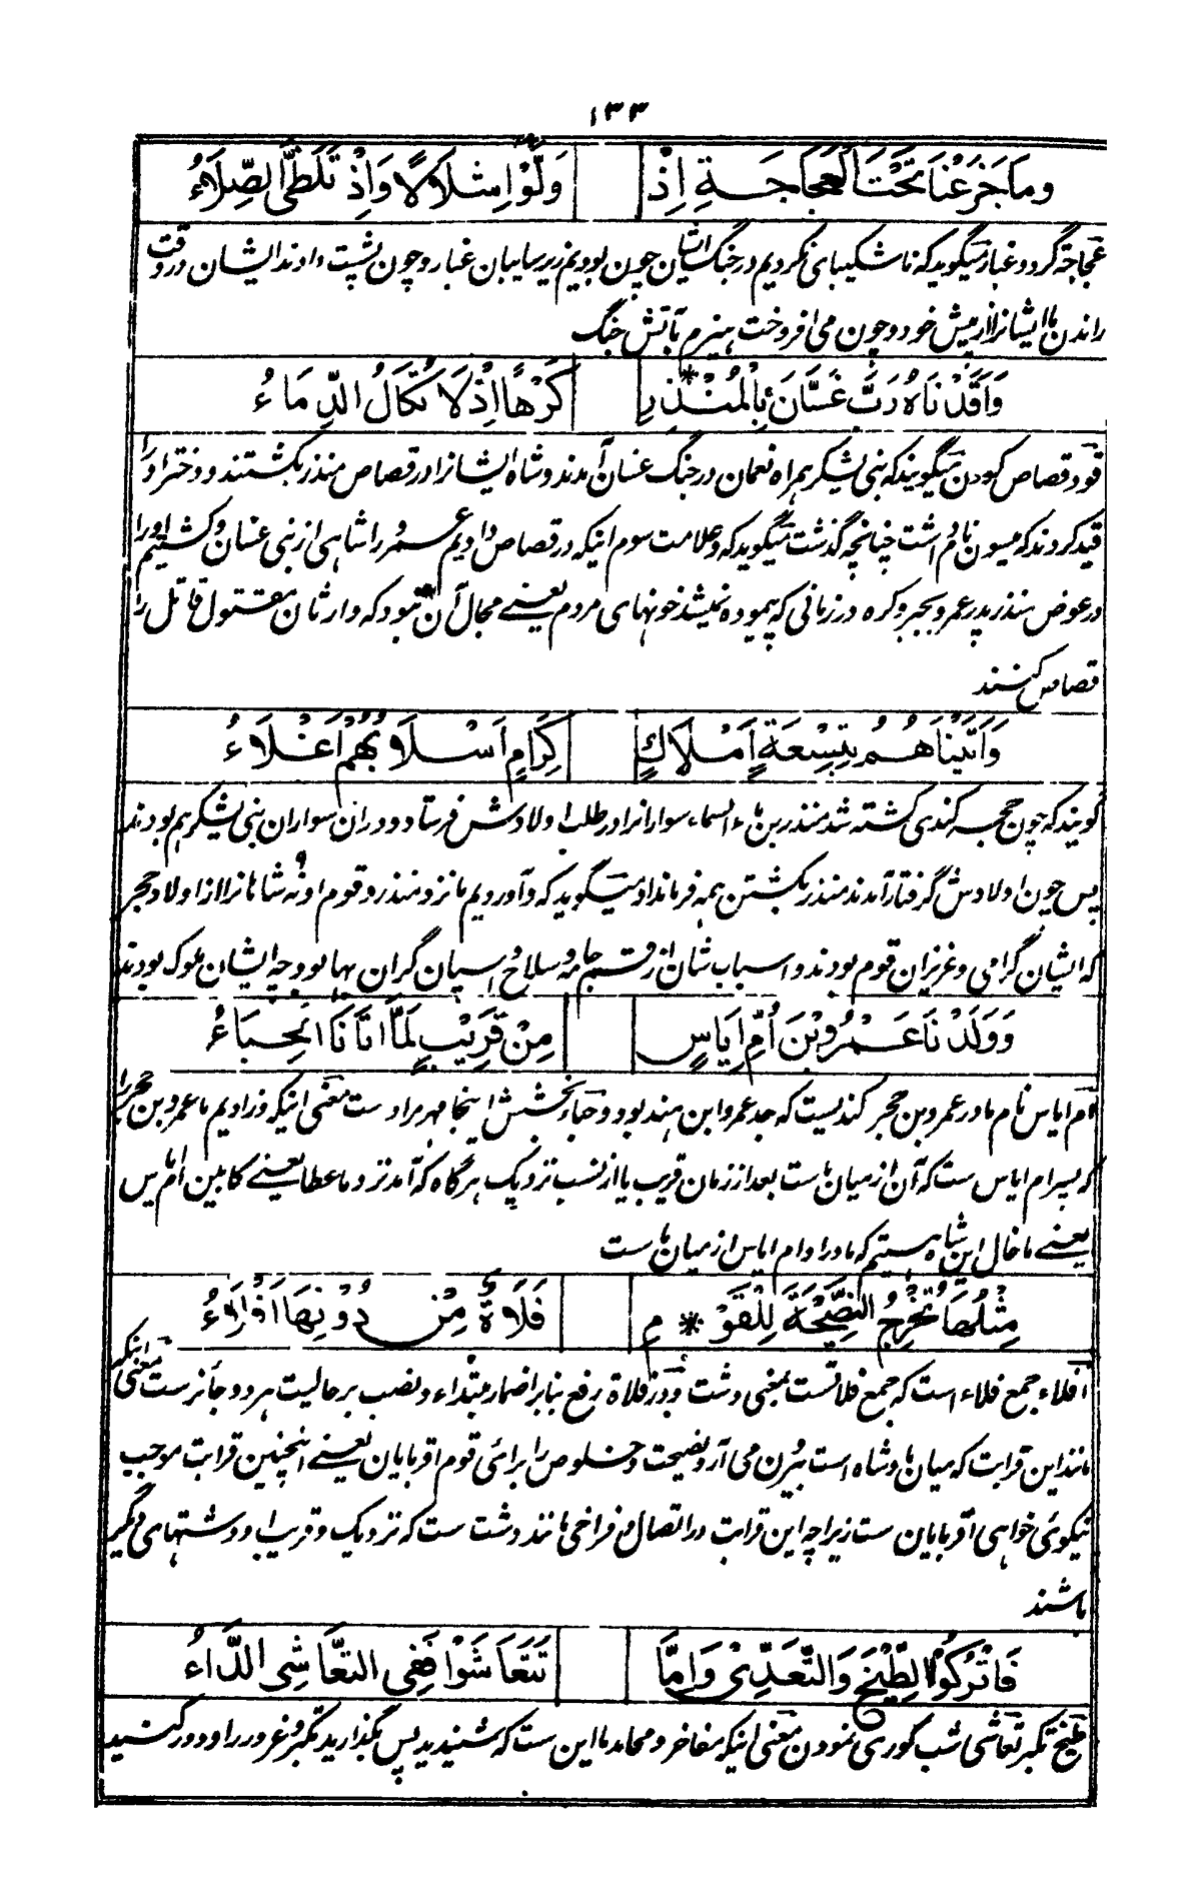 ۱۳۳
وَمَا جَزَعْنَا تَحْتَ الْعَجَاجَةِ اِذْ وَلَّوْا شِلَالًا وَاِذْ تَلَظَّى الصِّلَاءُ
عجاجة گرد و غبار میگوید که ناشکیبای نکردیم در جنگ ایشان چون بودیم زیر سایبان غبار و چون پشت دادند ایشان در وقت
راندن ما ایشانرا از پیش خود و چون می افروخت هیزم بآتش جنگ
وَاَقَدْنَاهُ رَبَّ غَسَّانَ بِالْمُنْذِرِ * كَرْهًا اِذْ لَا تُكَالُ الدِّمَاءُ
قود قصاص کردن میگویند که بنی یشکر همراه نعمان در جنگ غسان آمدند و شاه ایشانرا در قصاص منذر بکشتند و دختر او را
قید کردند که میسون نام داشت چنانچه گذشت میگوید که و علامت سوم اینکه در قصاص دادیم عمرو را شاهی از بنی غسان و کشتیم او را
در عوض منذر پدر عمرو بجبر و کره در زمانی که پیموده نمیشد خونهای مردم یعنے مجال آن نبود که وارثان مقتول قاتل را
قصاص کنند
وَاَتَيْنَاهُمْ بِتِسْعَةِ اَمْلَاكٍ كِرَامٍ اَسْلَابُهُمْ اَغْلَاءُ
گویند که چون حجر کندی کشته شد منذر بن ماء السماء سوارانرا در طلب اولادش فرستاد و دران سواران بنی یشکر هم بودند
پس چون اولادش گرفتار آمدند منذر بکشتن همه فرمانداد میگوید که و آوردیم ما نزد منذر و قوم او نُه شاهانرا از اولاد حجر
که ایشان گرامی و عزیزان قوم بودند و اسباب شان از قسم جامه و سلاح و اسپان گران بها بود چه ایشان ملوک بودند
وَوَلَدْنَا عَمْرَو بْنَ اُمِّ اِيَاسٍ مِنْ قَرِيْبٍ لَمَّا اَتَانَا الْحِبَاءُ
ام ایاس نام مادر عمرو بن حجر کندیست که جد عمرو ابن هند بود و حباء بخشش اینجا مهر مرادست معنی اینکه و زادیم ما عمرو بن حجر را
که پسر ام ایاس ست که آن از میان ماست بعد از زمان قریب یا از نسب نزدیک هرگاه که آمد نزد ما عطا یعنے کابین ام ایاس
یعنے ما خال این شاه هستیم که مادر او ام ایاس از میان ماست
مِثْلُهَا تُخْرِجُ النَّصِيْحَةَ لِلْقَوْ * مِ فَلَاةٌ مِنْ دُوْنِهَا اَفْلَاءُ
افلاء جمع فلاء است که جمع فلاتست بمعنی دشت و در فلاة رفع بنا بر اضمار مبتداء و نصب بر حالیت هر دو جائزست معنی اینکه
مانند این قرابت که میان ما و شاه است بیرون می آرد نصیحت و خلوص را برائی قوم اقربایان یعنے اینچنین قرابت موجب
نیکوئی خواهی اقربایان ست زیراچه این قرابت در اتصال و فراخی مانند دشت ست که نزدیک و قریب او دشتهای دیگر
باشند
فَاتْرُكُوا الطَّيْخَ وَالتَّعَدِّيْ وَاِمَّا تَتَعَاشَوْا فَفِى التَّعَاشِى الدَّاءُ
طیخ تکبر تعاشی شب کوری نمودن معنی اینکه مفاخر و محامد ما این ست که شنیدید پس بگذارید تکبر و غرور را و دور کنید